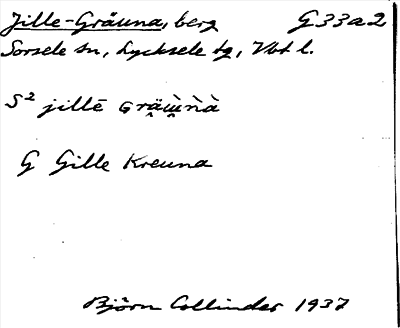 Jille-Gräuna, berg G 33 a 2
Sorsele sn, Lycksele tg, Vbt l.
S² jillē
G Gille Kreuna
Björn Collinder 1937